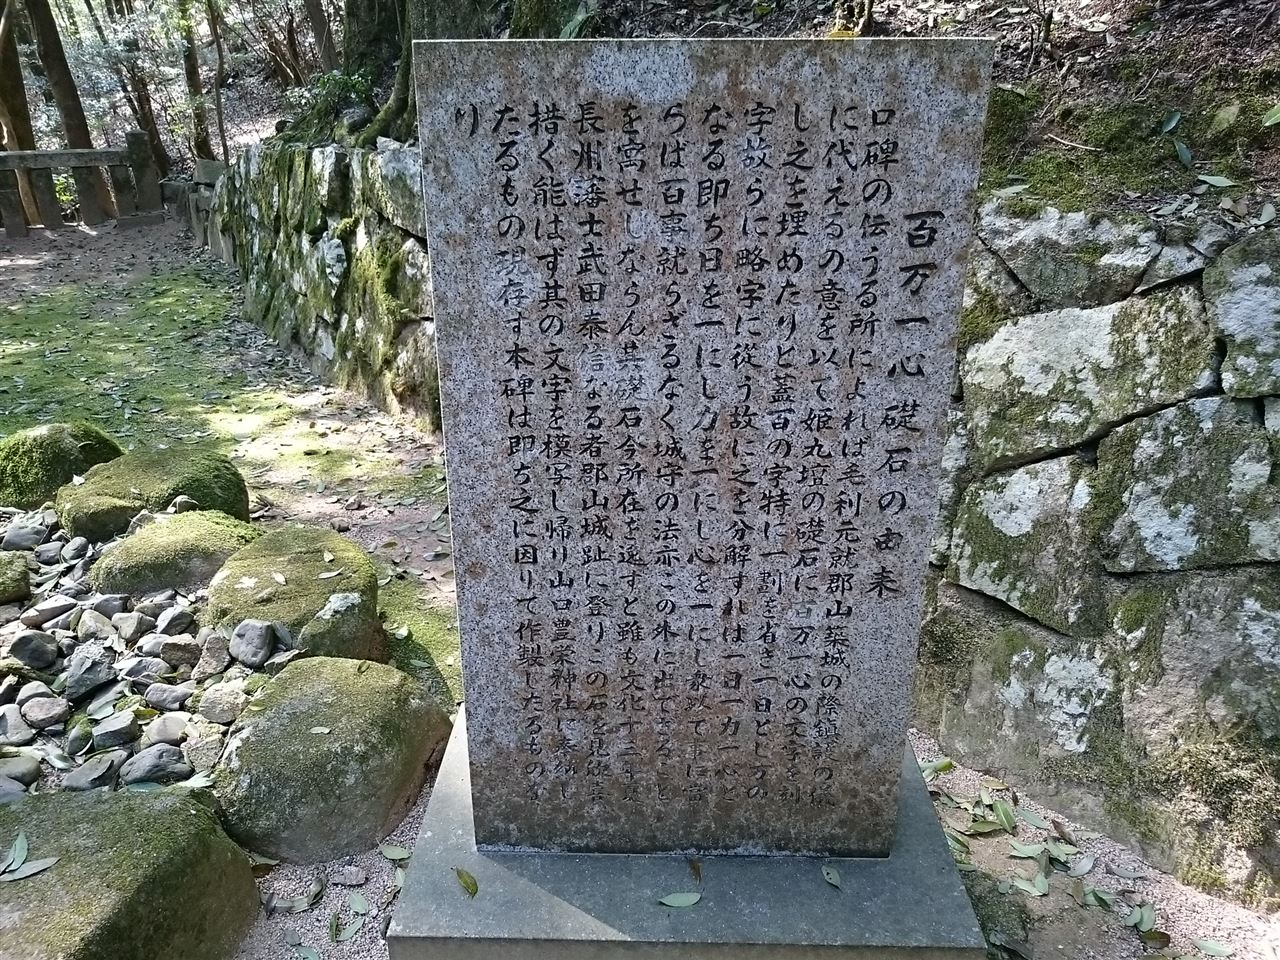 百万一心礎石の由来
口碑の伝うる所によれば毛利元就郡山築城の際鎮護の儀
に代えるの意を以て姫丸壇の礎石に百万一心の文字を刻
し之を埋めたりと蓋百の字特に一劃を省き一日とし万の
字故らに略字に従う故に之を分解すれば一日一力一心と
なる即ち日を一にし力を一にし心を一にし衆致て事に当
らば百事就らざるなく城守の法亦この外に出でざること
を寓せしならん其礎石今所在を逸すと雖も文化十三年夏
長州藩士武田泰信なる者郡山城趾に登りこの石を見
措く能はず其の文字を模写し帰り山口豊栄神社に奉納し
たるもの現存す本碑は即ち之に因りて作製したるものな
り